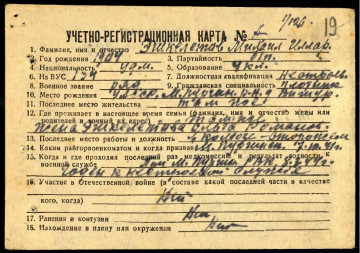 1/126
19
УЧЕТНО-РЕГИСТРАЦИОННАЯ КАРТА №
1. Фамилия, имя и отчество Эшкелетов Михаил Илар.
2. Год рождения 1904 3. Партийность б/п.
4. Национальность удм. 5. Образование 4 кл.
6. № ВУС 134 7. Должностная квалификация Нестроев.
8. Военное звание ряд 9. Гражданская специальность Плотник
10. Место рождения УАССР. М. Пургин. р-н д
11. Последнее место жительства там же
12. Где проживает в настоящее время семья (фамилия, имя и отчество жены или
родителей и точный их адрес)
жена Эшкелетова Романов
13. Последнее место работы и должность
14. Каким райгорвоенкоматом и когда призван М. Пургин. 7.10.41 г.
15. Когда и где проходил последний раз медосмотр и результат годности к
военной службе Пургин РВК
годен к нестроевой службе
16. Участие в Отечественной войне (в составе какой последней части и в качестве
кого, когда) Нет
17. Ранения и контузии Нет
18. Нахождение в плену или окружении Нет